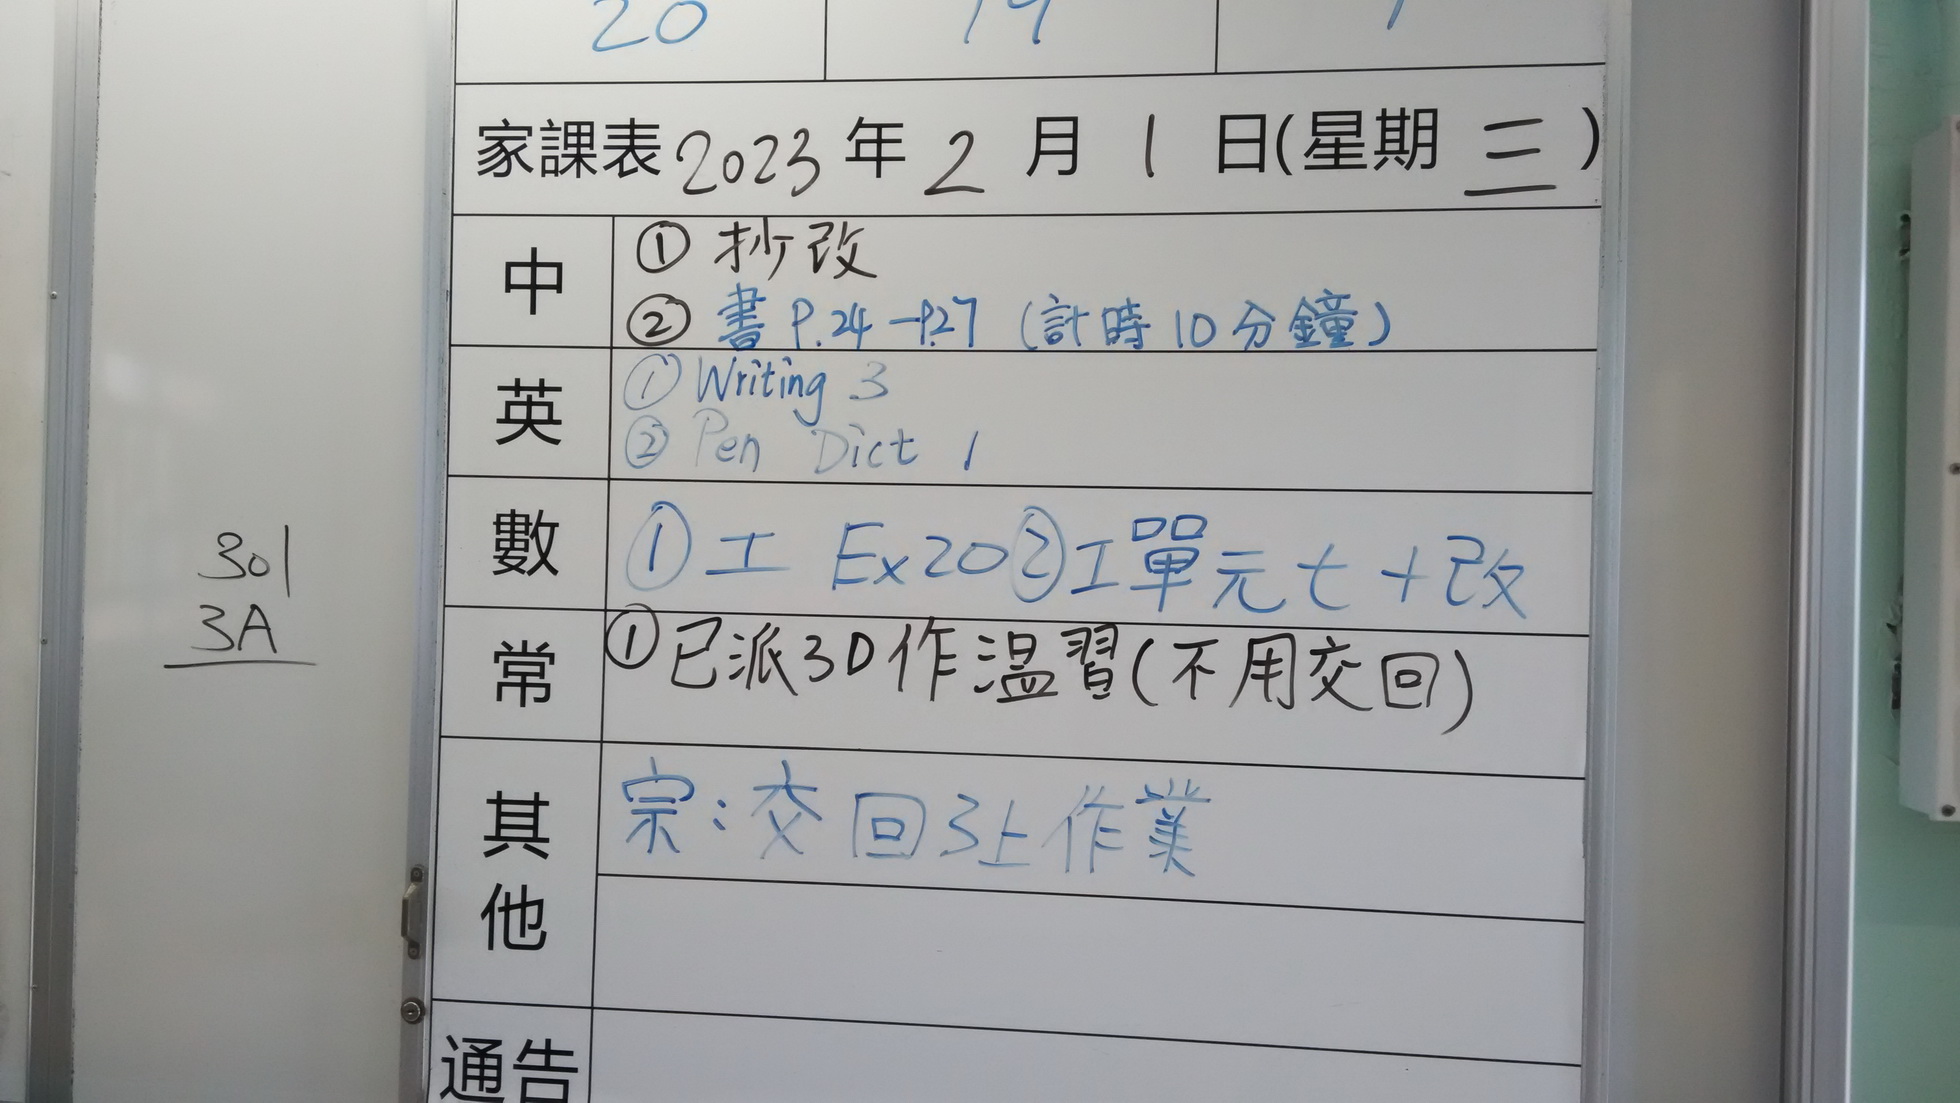 20 19 1
家課表 2023 年 2 月 1 日(星期 三 )
中
① 抄改
② 書 P.24 - P.27 (計時 10 分鐘)
英
① Writing 3
② Pen Dict 1
數
① 工 Ex20 ② 工單元七 + 改
常
① 已派3D作溫習(不用交回)
其他
宗:交回3上作業
通告
301
3A